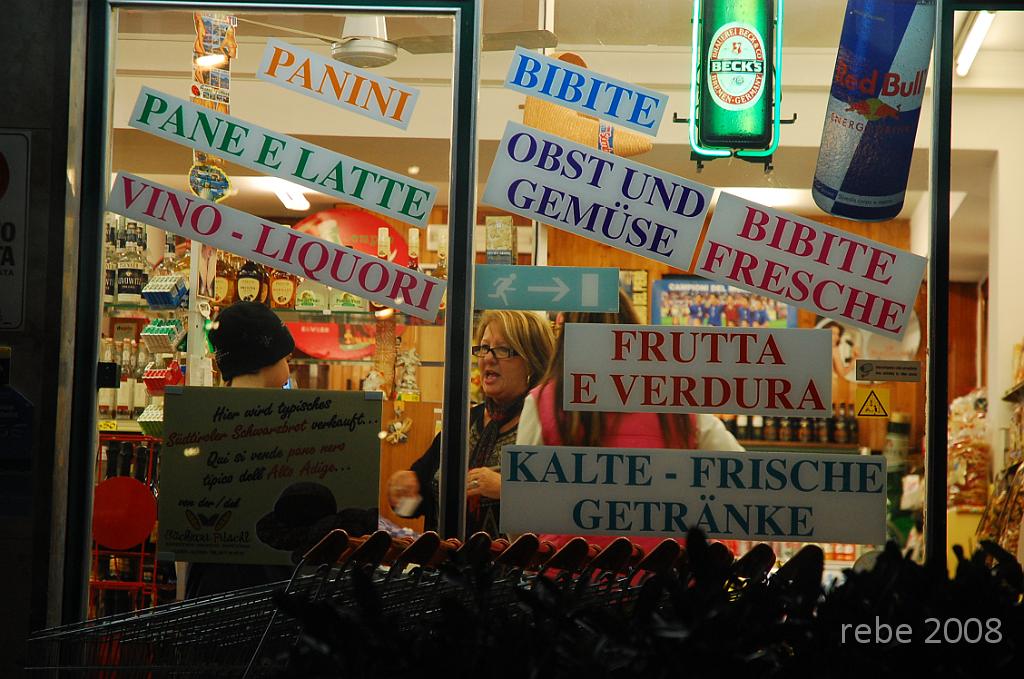 PANINI
BIBITE
BRAUEREI BECK & CO
BECK'S
BREMEN-GERMANY
Red Bull
ENERGY DRINK
PANE E LATTE
OBST UND
GEMÜSE
VINO - LIQUORI
BIBITE
FRESCHE
CAMPIONI DEL
FRUTTA
E VERDURA
Hier wird typisches
Südtiroler Schwarzbrot verkauft...
Qui si vende pane nero
tipico dell' Alto Adige...
von der/del
KALTE - FRISCHE
GETRÄNKE
rebe 2008